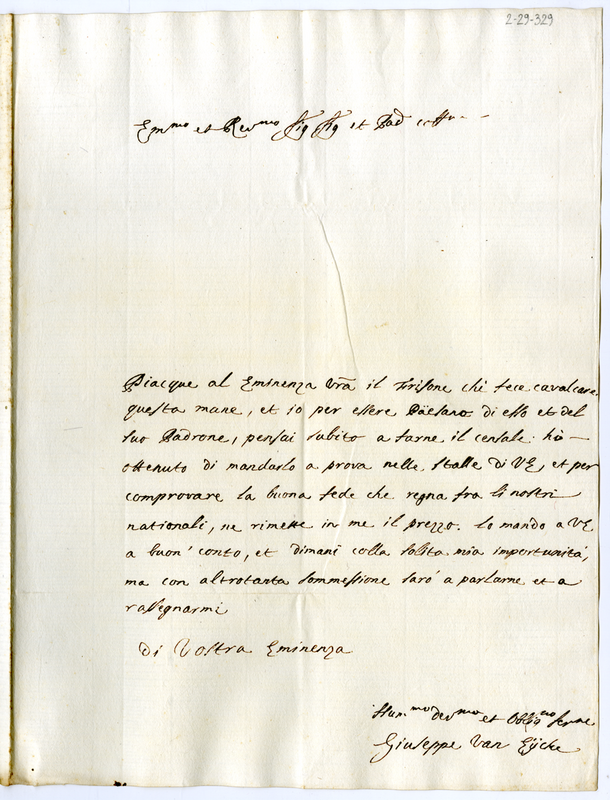 2-29-329
Em.mo et Rev.mo Sig Sig et Pad
Piacque al Eminenza Vrã il Frisone che fece cavalcare
questa mane, et io per essere Päesano di esso et del
suo Padrone, pensai subito a farne il censale. hò
ottenuto di mandarlo a prova nelle stalle di VE, et per
comprovare la buona fede che regna fra li nostri
nationali, ne rimette in me il prezzo. lo mando a VE
a buon' conto, et dimani colla solita mia importunità,
ma con altrotanta sommessione sarò a parlarne et a
rassegnarmi
di Vostra Eminenza
Hum.mo dev.mo et Oblig.mo
Giuseppe Van Eÿcke